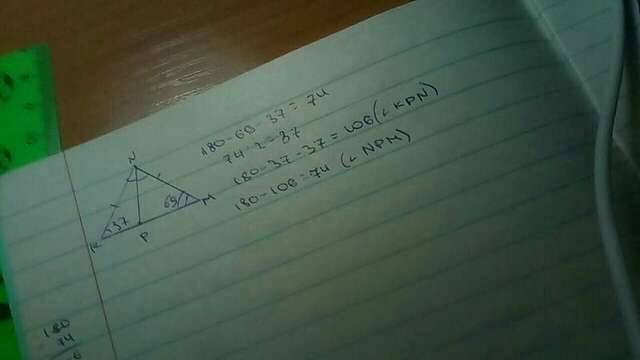 180-69-37=74
74:2=37
180-37-37=106(∠KPN)
180-106=74 (∠NPM)
N
K
37
P
69
M
180
74
6